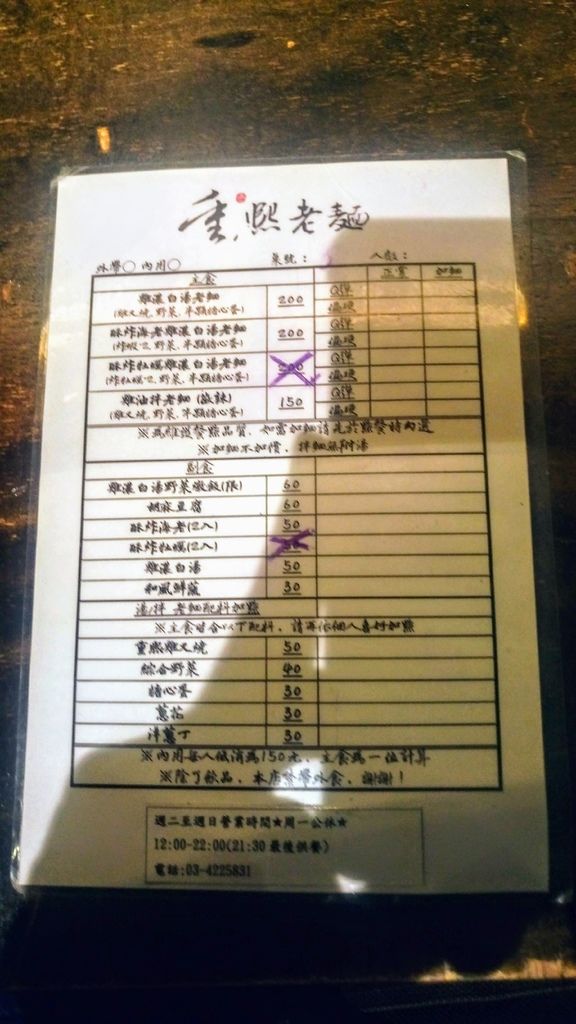 重熙老麵
外帶○ 內用○ 桌號： 人數：
主食 正常 加麵
雞濃白湯老麵 200 Q彈
(雞叉燒.野菜.半顆糖心蛋) 偏硬
酥炸海老雞濃白湯老麵 200 Q彈
(炸蝦*2.野菜.半顆糖心蛋) 偏硬
酥炸牡蠣雞濃白湯老麵 200 Q彈
(炸牡蠣*2.野菜.半顆糖心蛋) 偏硬
雞油拌老麵 150 Q彈
(雞叉燒.野菜.半顆糖心蛋) 偏硬
※為維護餐點品質，如需加麵請先於點餐時勾選
※加麵不加價，拌麵無附湯
副食
雞濃白湯野菜燉飯(限) 60
胡麻豆腐 60
酥炸海老(2入) 50
酥炸牡蠣(2入)
雞濃白湯 50
和風鮮蔬 30
湯/拌 老麵配料加點
※主食皆含以下配料，請再依個人喜好加點
重熙雞叉燒 50
綜合野菜 40
糖心蛋 30
蔥花 30
洋蔥丁 30
※內用每人低消為150元，主食為一位計算
※除了飲品，本店禁帶外食，謝謝！
週二至週日營業時間★周一公休★
12:00-22:00(21:30最後供餐)
電話:03-4225831